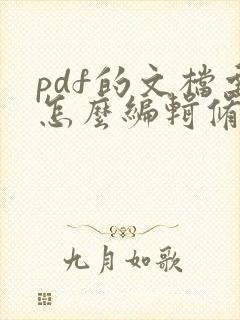 pdf的文檔
怎麼編輯
九月如歌